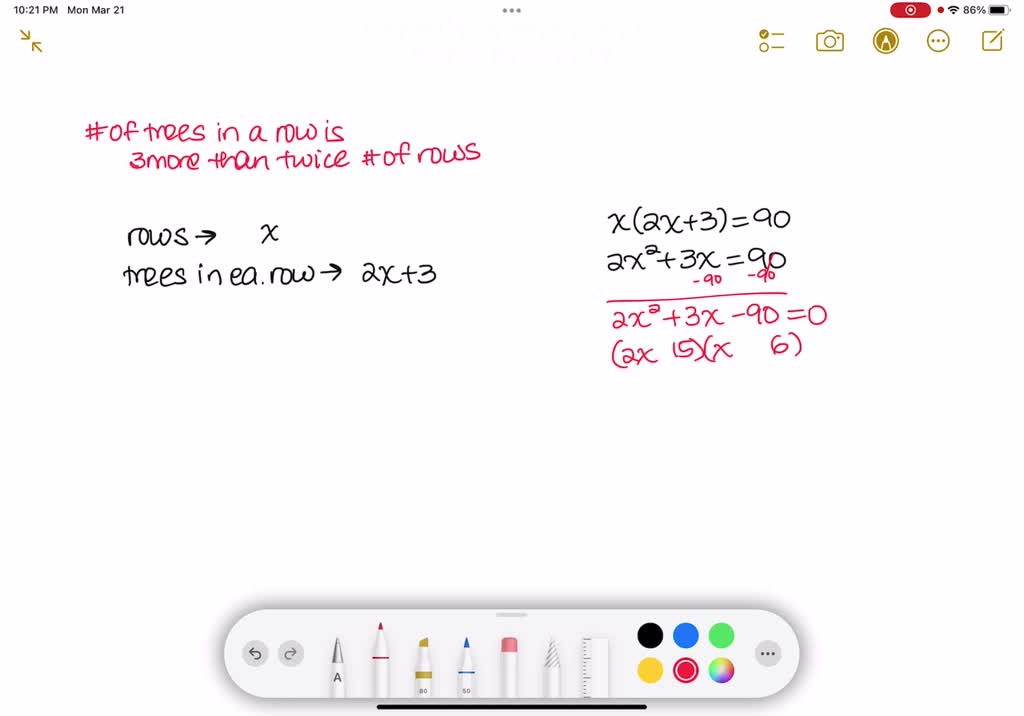 10:21 PM Mon Mar 21
86%
#of trees in a row is
3more than twice #of rows
rows→ x
trees in ea. row→ 2x+3
x(2x+3)=90
2x²+3x=90
-90 -90
2x²+3x-90=0
(2x 15)(x 6)
A
80
50